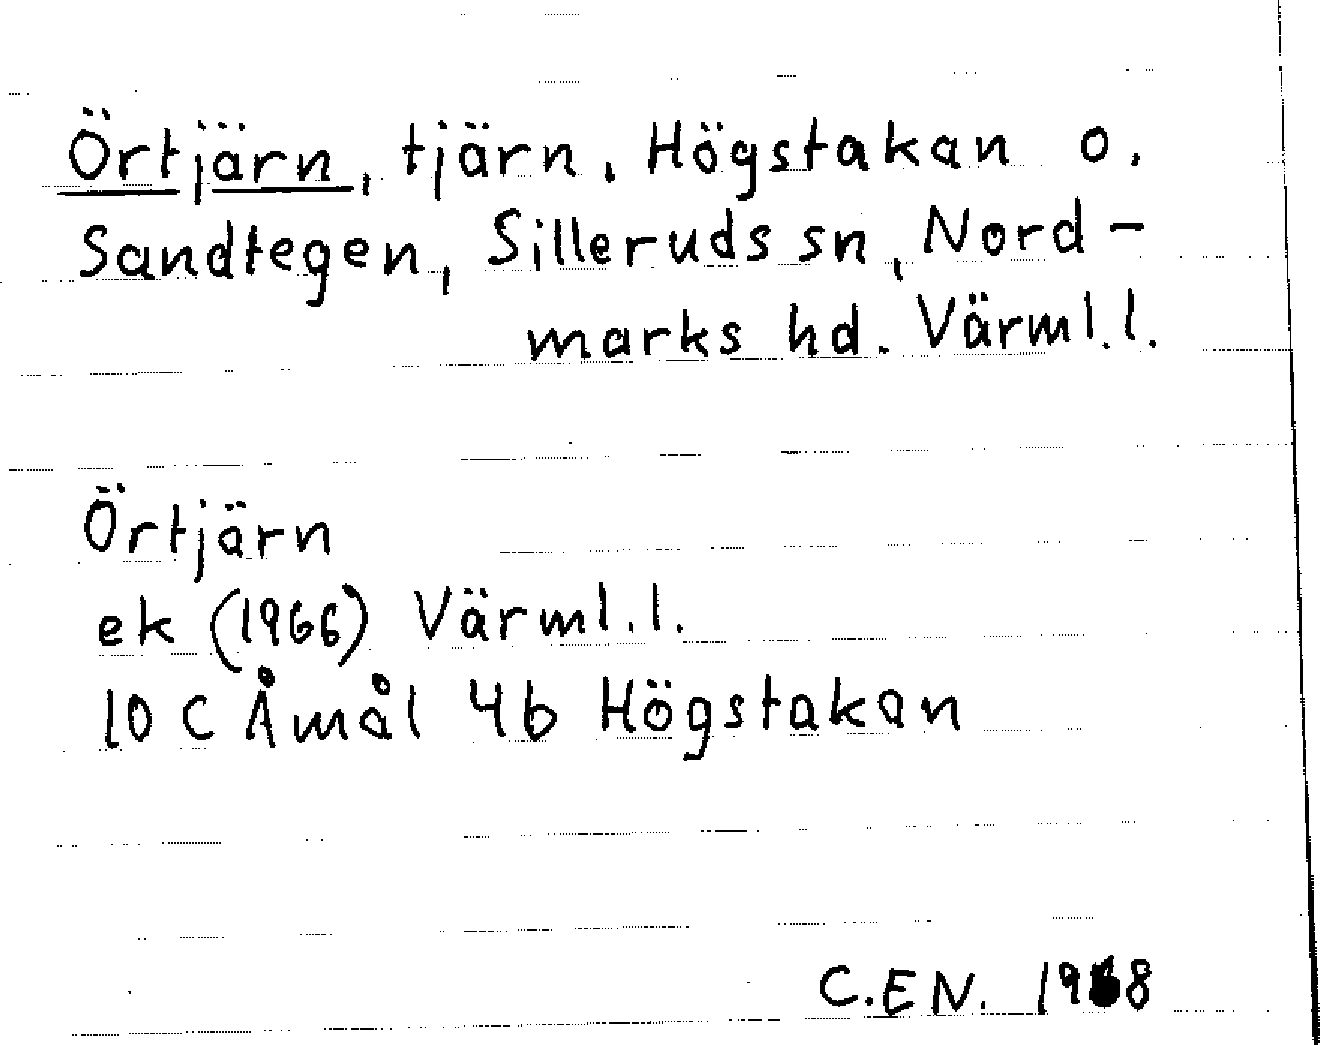 Örtjärn, tjärn, Högstakan o.
Sandtegen, Silleruds sn, Nord-
marks hd. Värml.l.
Örtjärn
ek (1966) Värml.l.
10 C Åmål 4b Högstakan
C.EN. 1968